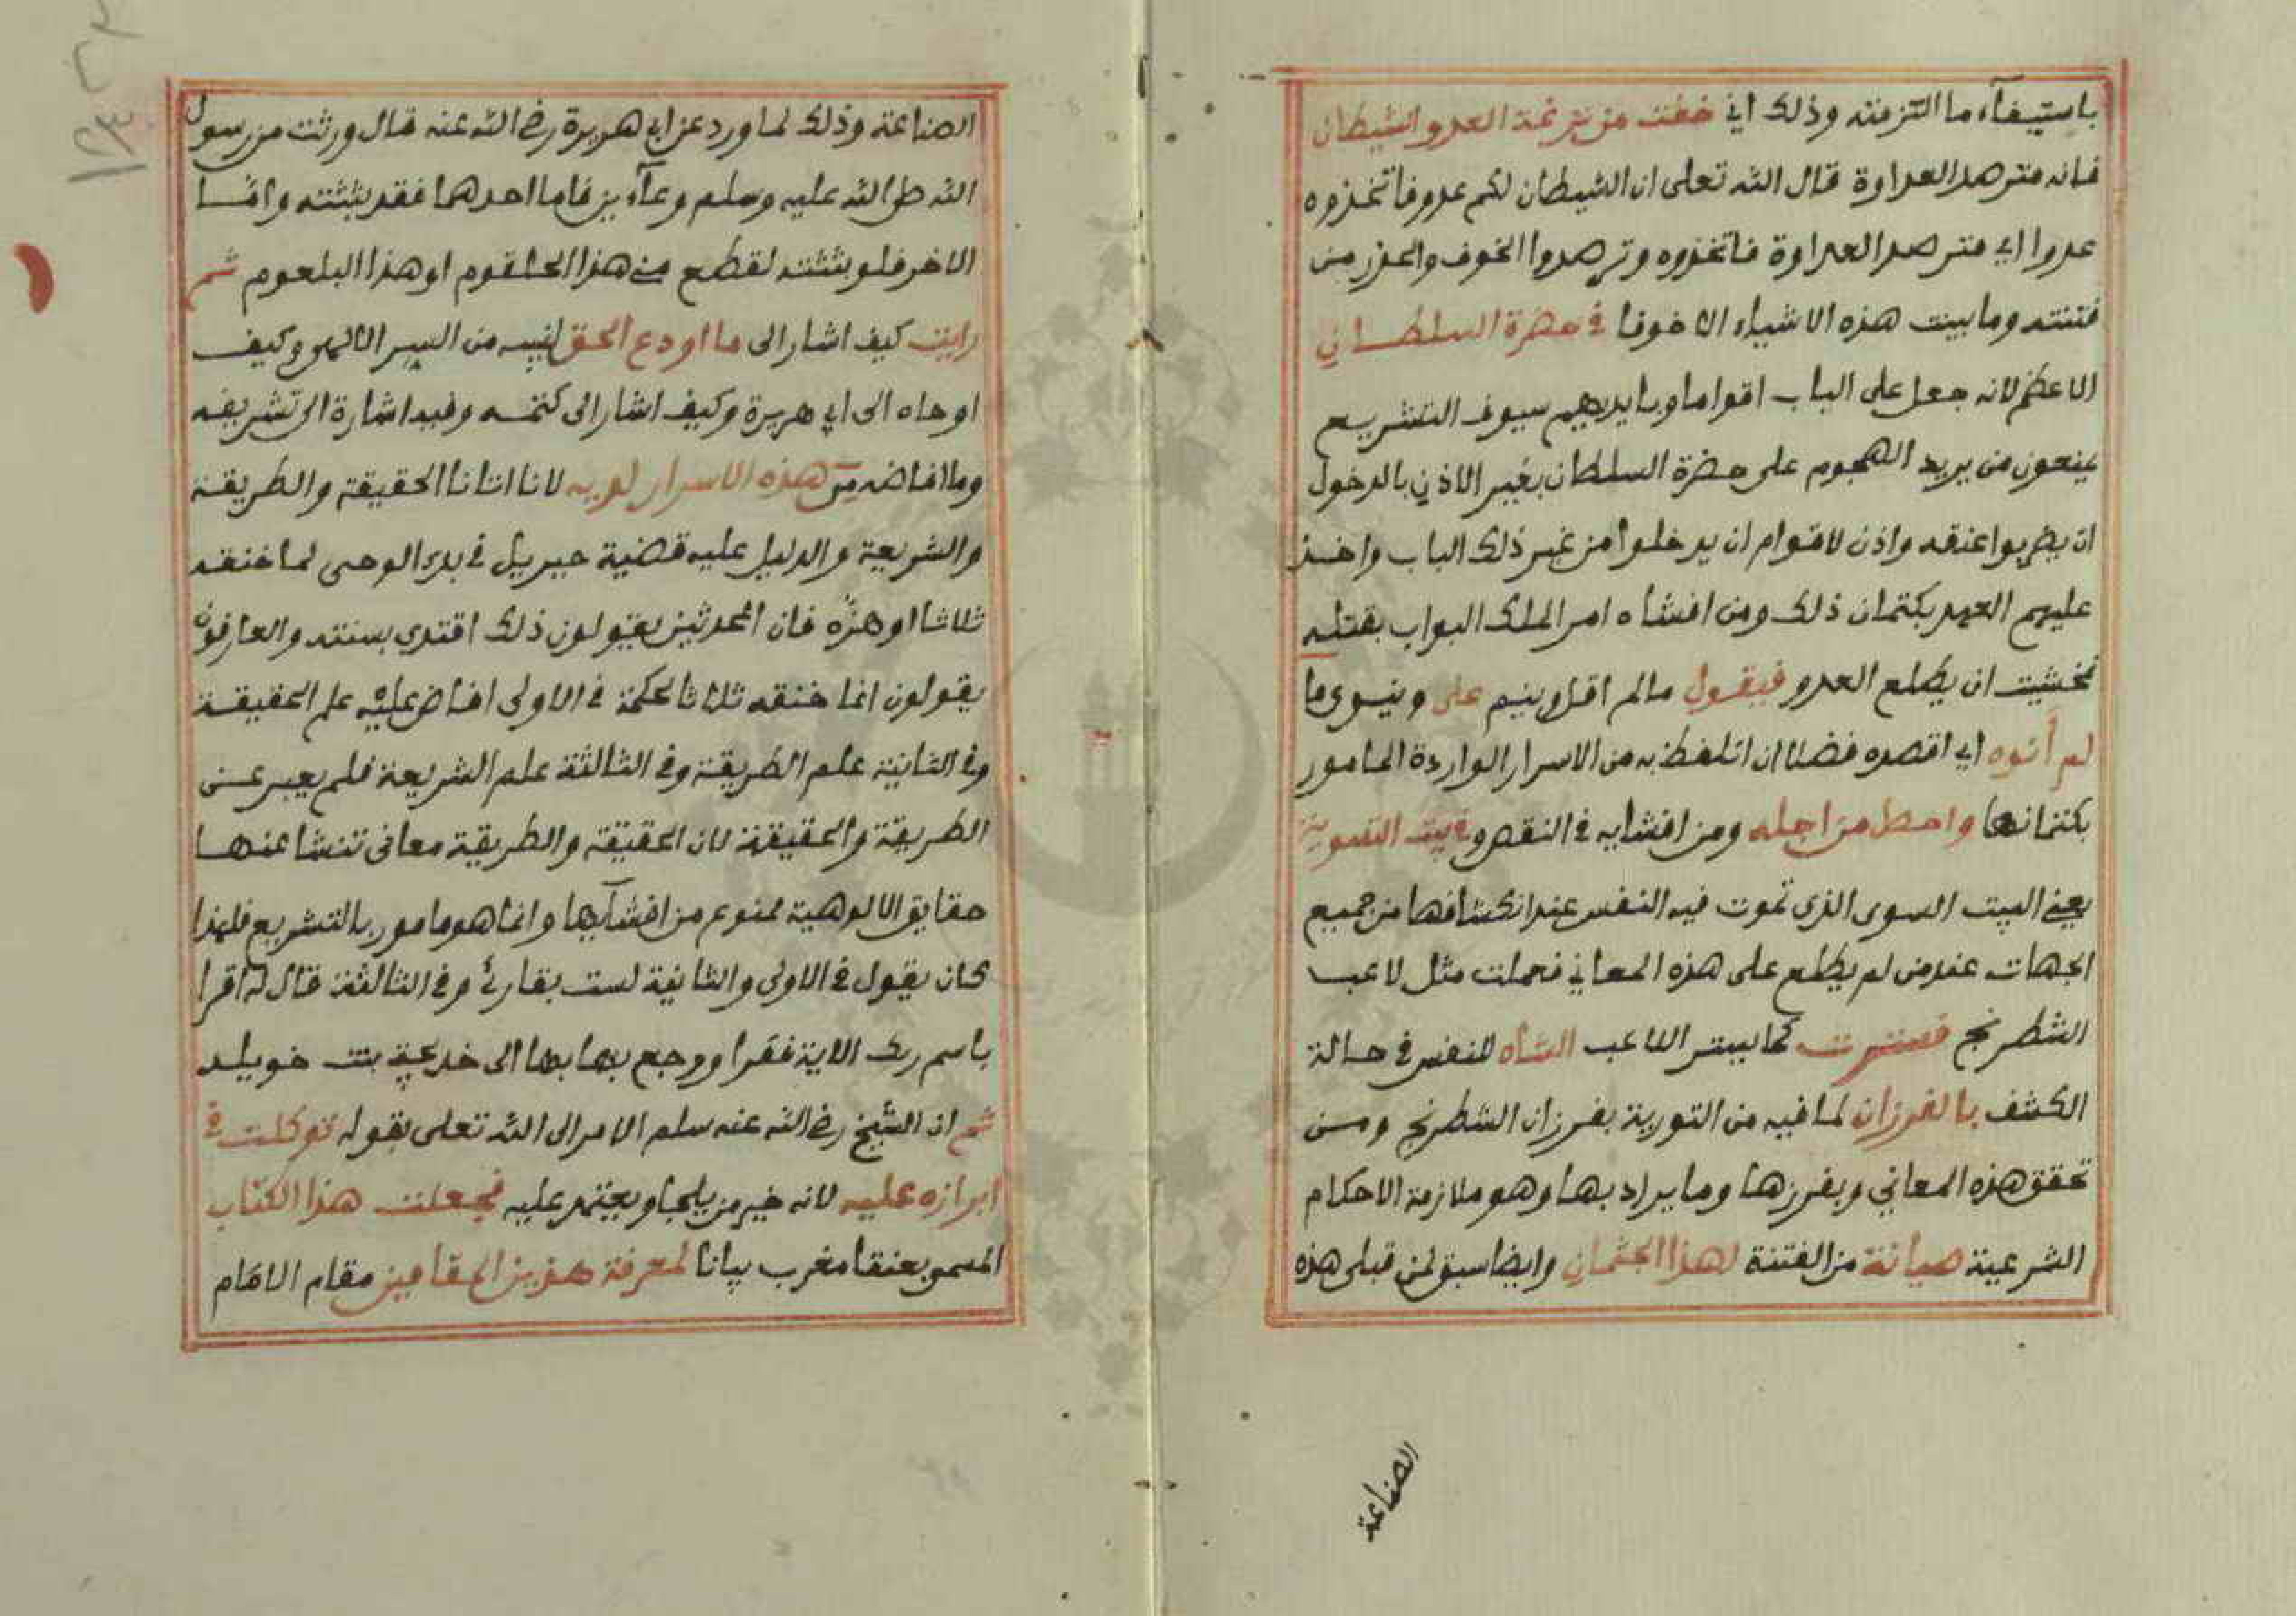 باستيفآء ما التزمته وذلك اني خفت من نزغة العدو الشيطان
فانه مترصد العداوة قال الله تعلى ان الشيطان لكم عدو فاتخذوه
عدوا اي مترصد العداوة فاتخذوه وترصدوا الخوف والحذر من
فتنته وما بينت هذه الاشياء الا خوفا في حضرة السلطان
الاعظم لانه جعل على الباب اقواما وبايديهم سيوف التشريع
يمنعون من يريد الهجوم على حضرة السلطان بغير الاذن بالدخول
ان يضربوا عنقه واذن لاقوام ان يدخلوا من غير ذلك الباب واخذ
عليهم العهد بكتمان ذلك ومن افشاه امر الملك البواب بقتله
فخشيت ان يطلع العدو فيقول ما لم اقل وينم على وينسوى ما
لم أنوه اي اقصده فضلا ان اتلفظ به من الاسرار الواردة المامور
بكتمانها واحصل من اجله ومن افشايه في النقص وفي بيت التسوية
يعني البيت السوى الذى تموت فيه النفس عند انكشافها من جميع
الجهات عند من لم يطلع على هذه المعاني فحملت مثل لاعب
الشطرنج فسترت كما يستر اللاعب الشاه للنفس في حالة
الكشف بالفرزان لما فيه من التورية بفرزان الشطرنج ومن
تحقق هذه المعاني وبفرزها وما يراد بها وهو ملازمة الاحكام
الشرعية صيانة من الفتنة لهذا الجثمان وايضا سبق لمن قبلى هذه
الصناعة
الصناعة وذلك لما ورد عن ابي هريرة رضى الله عنه قال ورثت من رسول
الله صلى الله عليه وسلم وعآءين فاما احدهما فقد بثثته واما
الاخر فلو بثثته لقطع مني هذا الحلقوم او هذا البلعوم ثم
رايت كيف اشار الى ما اودع الحق لنبيه من السير الالهى وكيف
اوحاه الى ابي هريرة وكيف اشار الى كتمه وفيه اشارة الى تشريفه
وما افاضه من هذه الاسرار لديه لانا اتانا الحقيقة والطريقة
والشريعة والدليل عليه قضية جبريل في بدء الوحى لما خنقه
ثلاثا او هزه فان المحدثين يقولون ذلك اقتدى بسنته والعارفون
يقولون انما خنقه ثلاثا لحكمة في الاولى افاض عليه علم الحقيقة
وفى الثانية علم الطريقة وفى الثالثة علم الشريعة فلم يعبر عن
الطريقة والحقيقة لان الحقيقة والطريقة معانى تنشا عنها
حقايق الالوهية ممنوع من افشآيها وانما هو مامور بالتشريع فلهذا
كان يقول في الاولى والثانية لست بقارئ وفى الثالثة قال له اقرا
باسم ربك الاية فقرا ورجع بها بها الى خديجة بنت خويلد
ثم ان الشيخ رضى الله عنه سلم الامر الى الله تعلى بقوله توكلت في
ابرازه عليه لانه خير من يلجا ويعتمد عليه فجعلت هذا الكتاب
المسمى بعنقا مغرب بيانا لمعرفة هذين المقامين مقام الامام